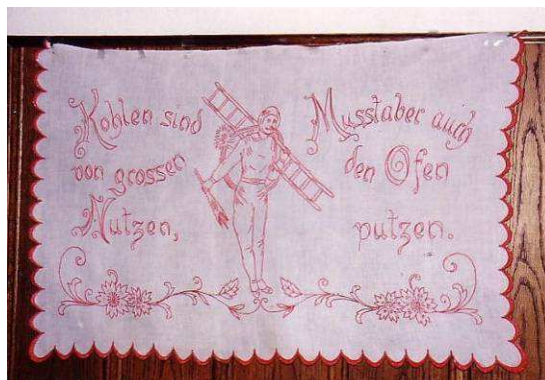 Kohlen sind
von grossen
Nutzen,
Musstaber auch
den Ofen
putzen.